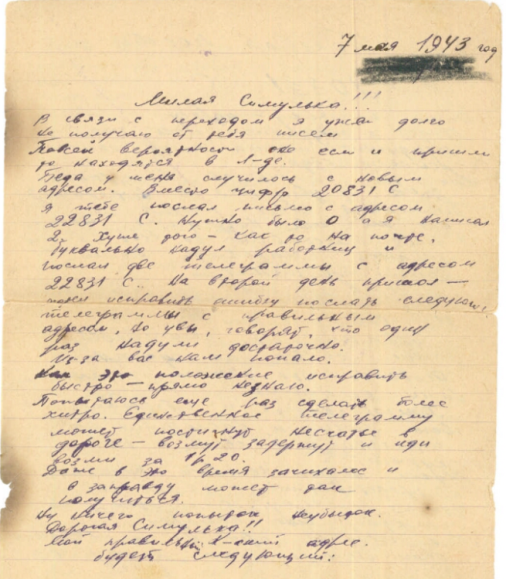 7 мая 1943 год
Милая Симулько!!!
В связи с переходом я уже долго
не получаю от тебя писем
вероятности они если и пришли
то находятся в Л-де.
Беда у меня случилось с новым
адресом. Вместо цифр 20831 С
я тебе послал письмо с адресом
22831 С. Нужно было 0 а я написал
2. Хуже того – как то на почте,
буквально надул работниц и
послал две телеграммы с адресом
22831 С. На второй день пришол –
исправить ошибку послать
телеграммы с правильным
адресом, но увы, говорят, что один
раз надули достаточно.
Из-за вас нам попало.
Как это положение исправить
быстро – прямо незнаю.
Попытаюсь еще раз сделать более
хитро. Единственное телеграмму
может постигнут несчатье в
дороге – возмут задержут и иди
возми за 1 р. 20.
Даже в это время зачихалось и
в заправду может так
получиться.
Ну ничего попыток неубыток.
Дорогая Симулька!!
Мой правильный адрес
будет следующий: